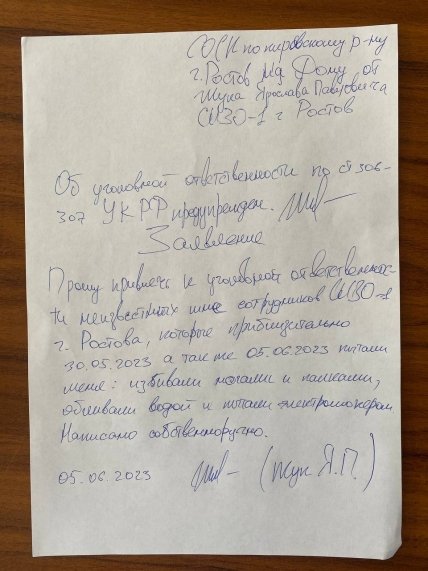 СОСК по кировскому р-ну
г. Ростов на Дону от
Жука Ярослава Павловича
СИЗО-1 г Ростов
Об уголовной ответственности по ст 306-
307 УК РФ предупрежден.
Заявление
Прошу привлечь к уголовной ответственнос-
ти неизвестных мне сотрудников СИЗО-1
г. Ростова, которые приблизительно
30.05.2023 а так же 05.06.2023 пытали
меня: избивали ногами и палками,
обливали водой и пытали электрошокером.
Написано собственноручно.
05.06.2023 (Жук Я.П.)